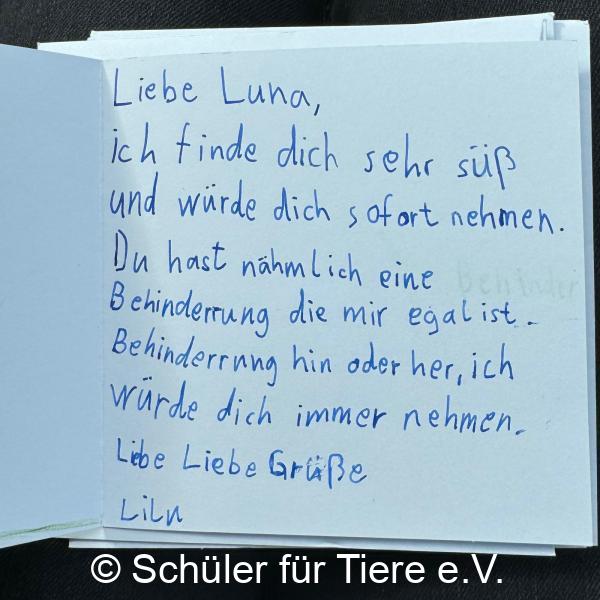 Liebe Luna,
ich finde dich sehr süß
und würde dich sofort nehmen.
Du hast nähmlich eine
Behinderrung die mir egal ist.
Behinderrung hin oder her, ich
würde dich immer nehmen.
Liebe Liebe Grüße
© Schüler für Tiere e.V.